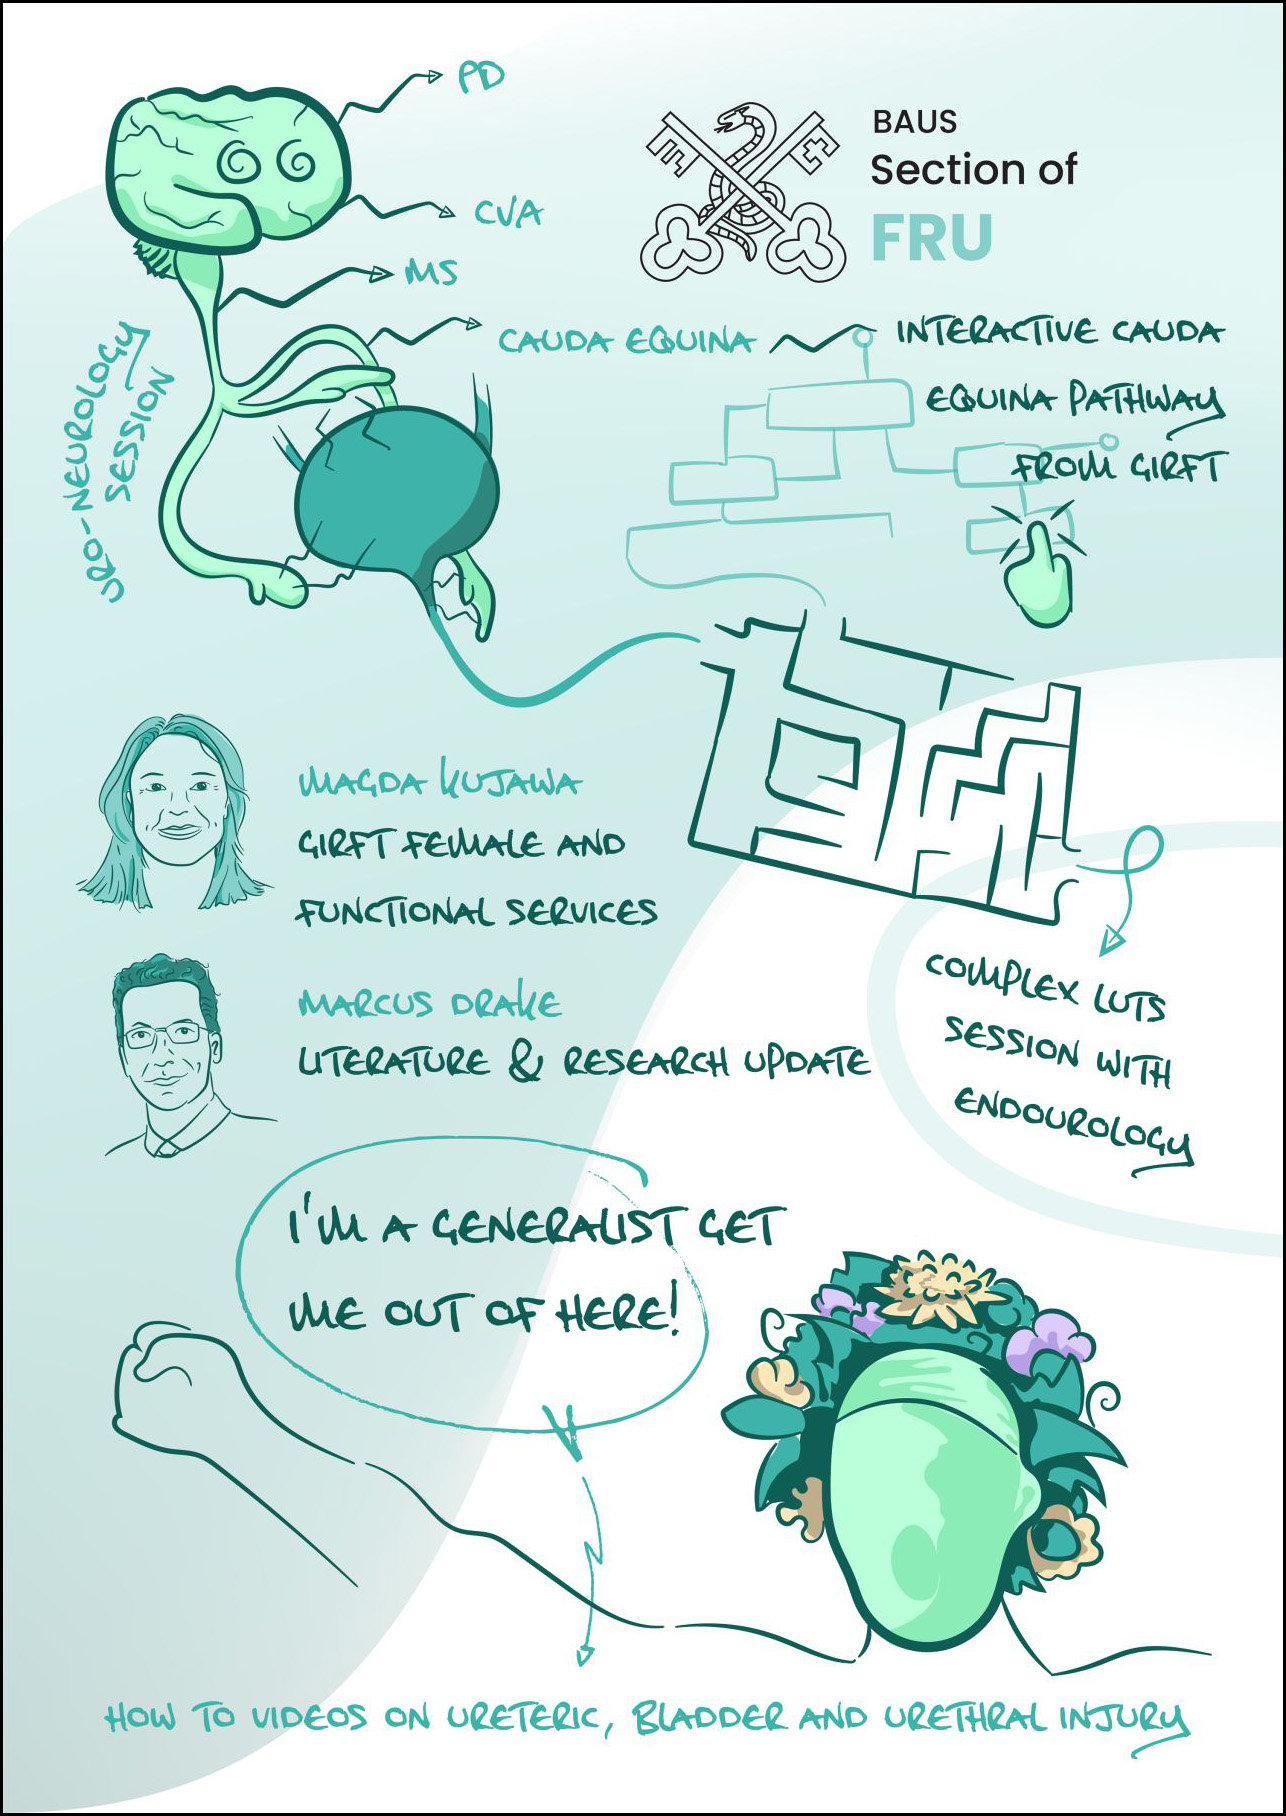 PD
BAUS
Section of
FRU
CVA
MS
CAUDA EQUINA
INTERACTIVE CAUDA
EQUINA PATHWAY
FROM GIRFT
URO-NEUROLOGY
SESSION
MAGDA KUJAWA
GIRFT FEMALE AND
FUNCTIONAL SERVICES
MARCUS DRAKE
LITERATURE & RESEARCH UPDATE
COMPLEX LUTS
SESSION WITH
ENDOUROLOGY
I'M A GENERALIST GET
ME OUT OF HERE!
HOW TO VIDEOS ON URETERIC, BLADDER AND URETHRAL INJURY